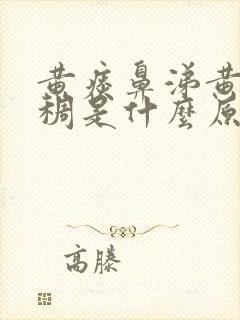 黄痰鼻涕黄
稠是什麼原
高滕